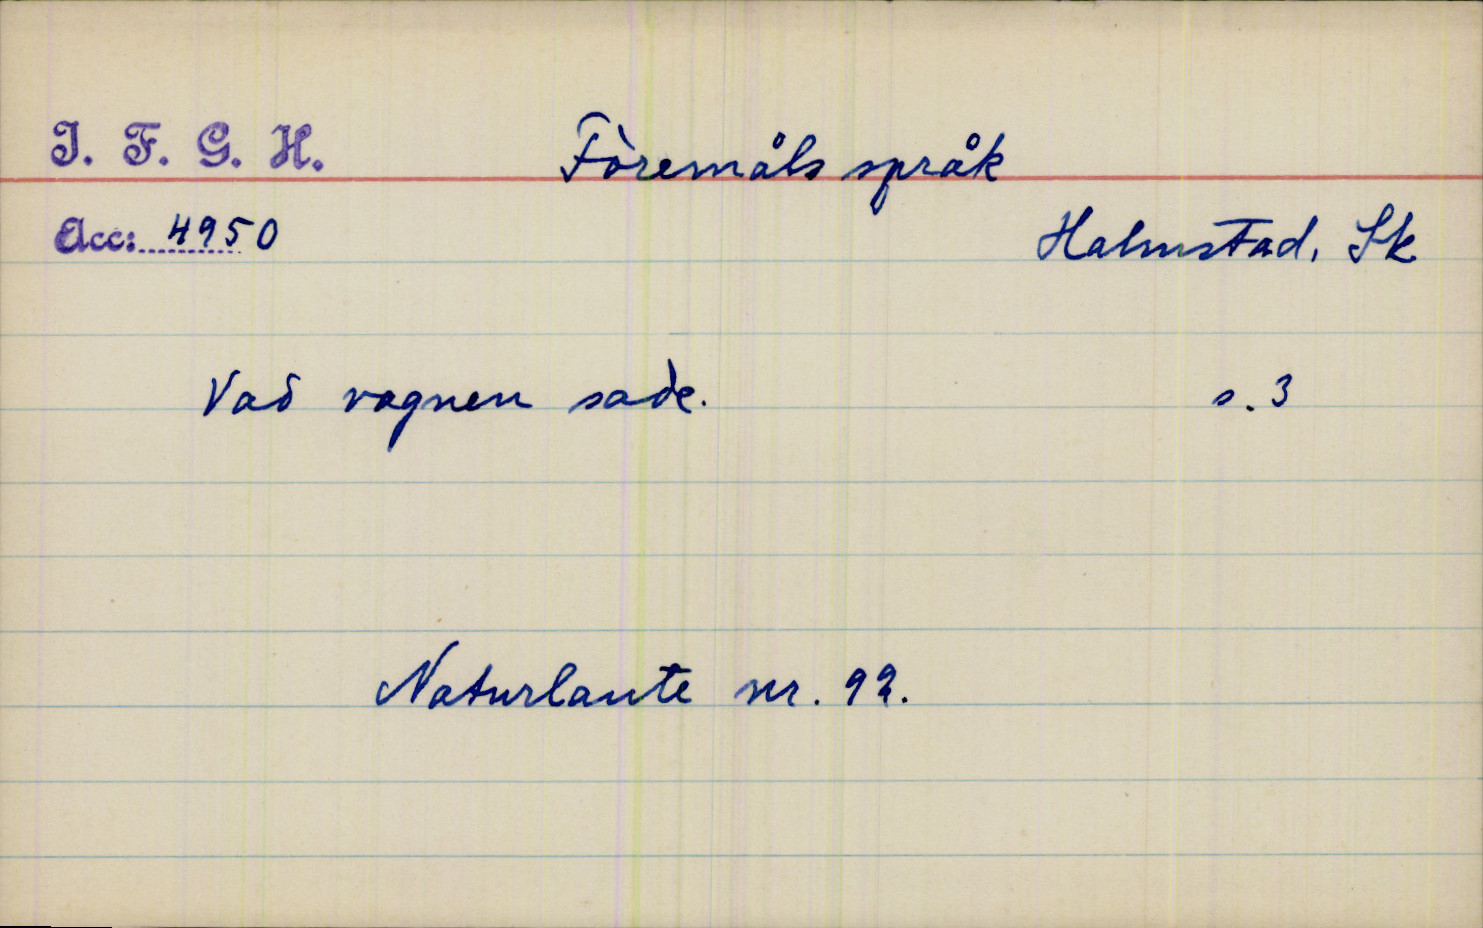 I. F. G. H. Föremåls språk
Acc: 4950 Halmstad, Sk
Vad vagnen sade. s. 3
Naturlaute nr. 92.